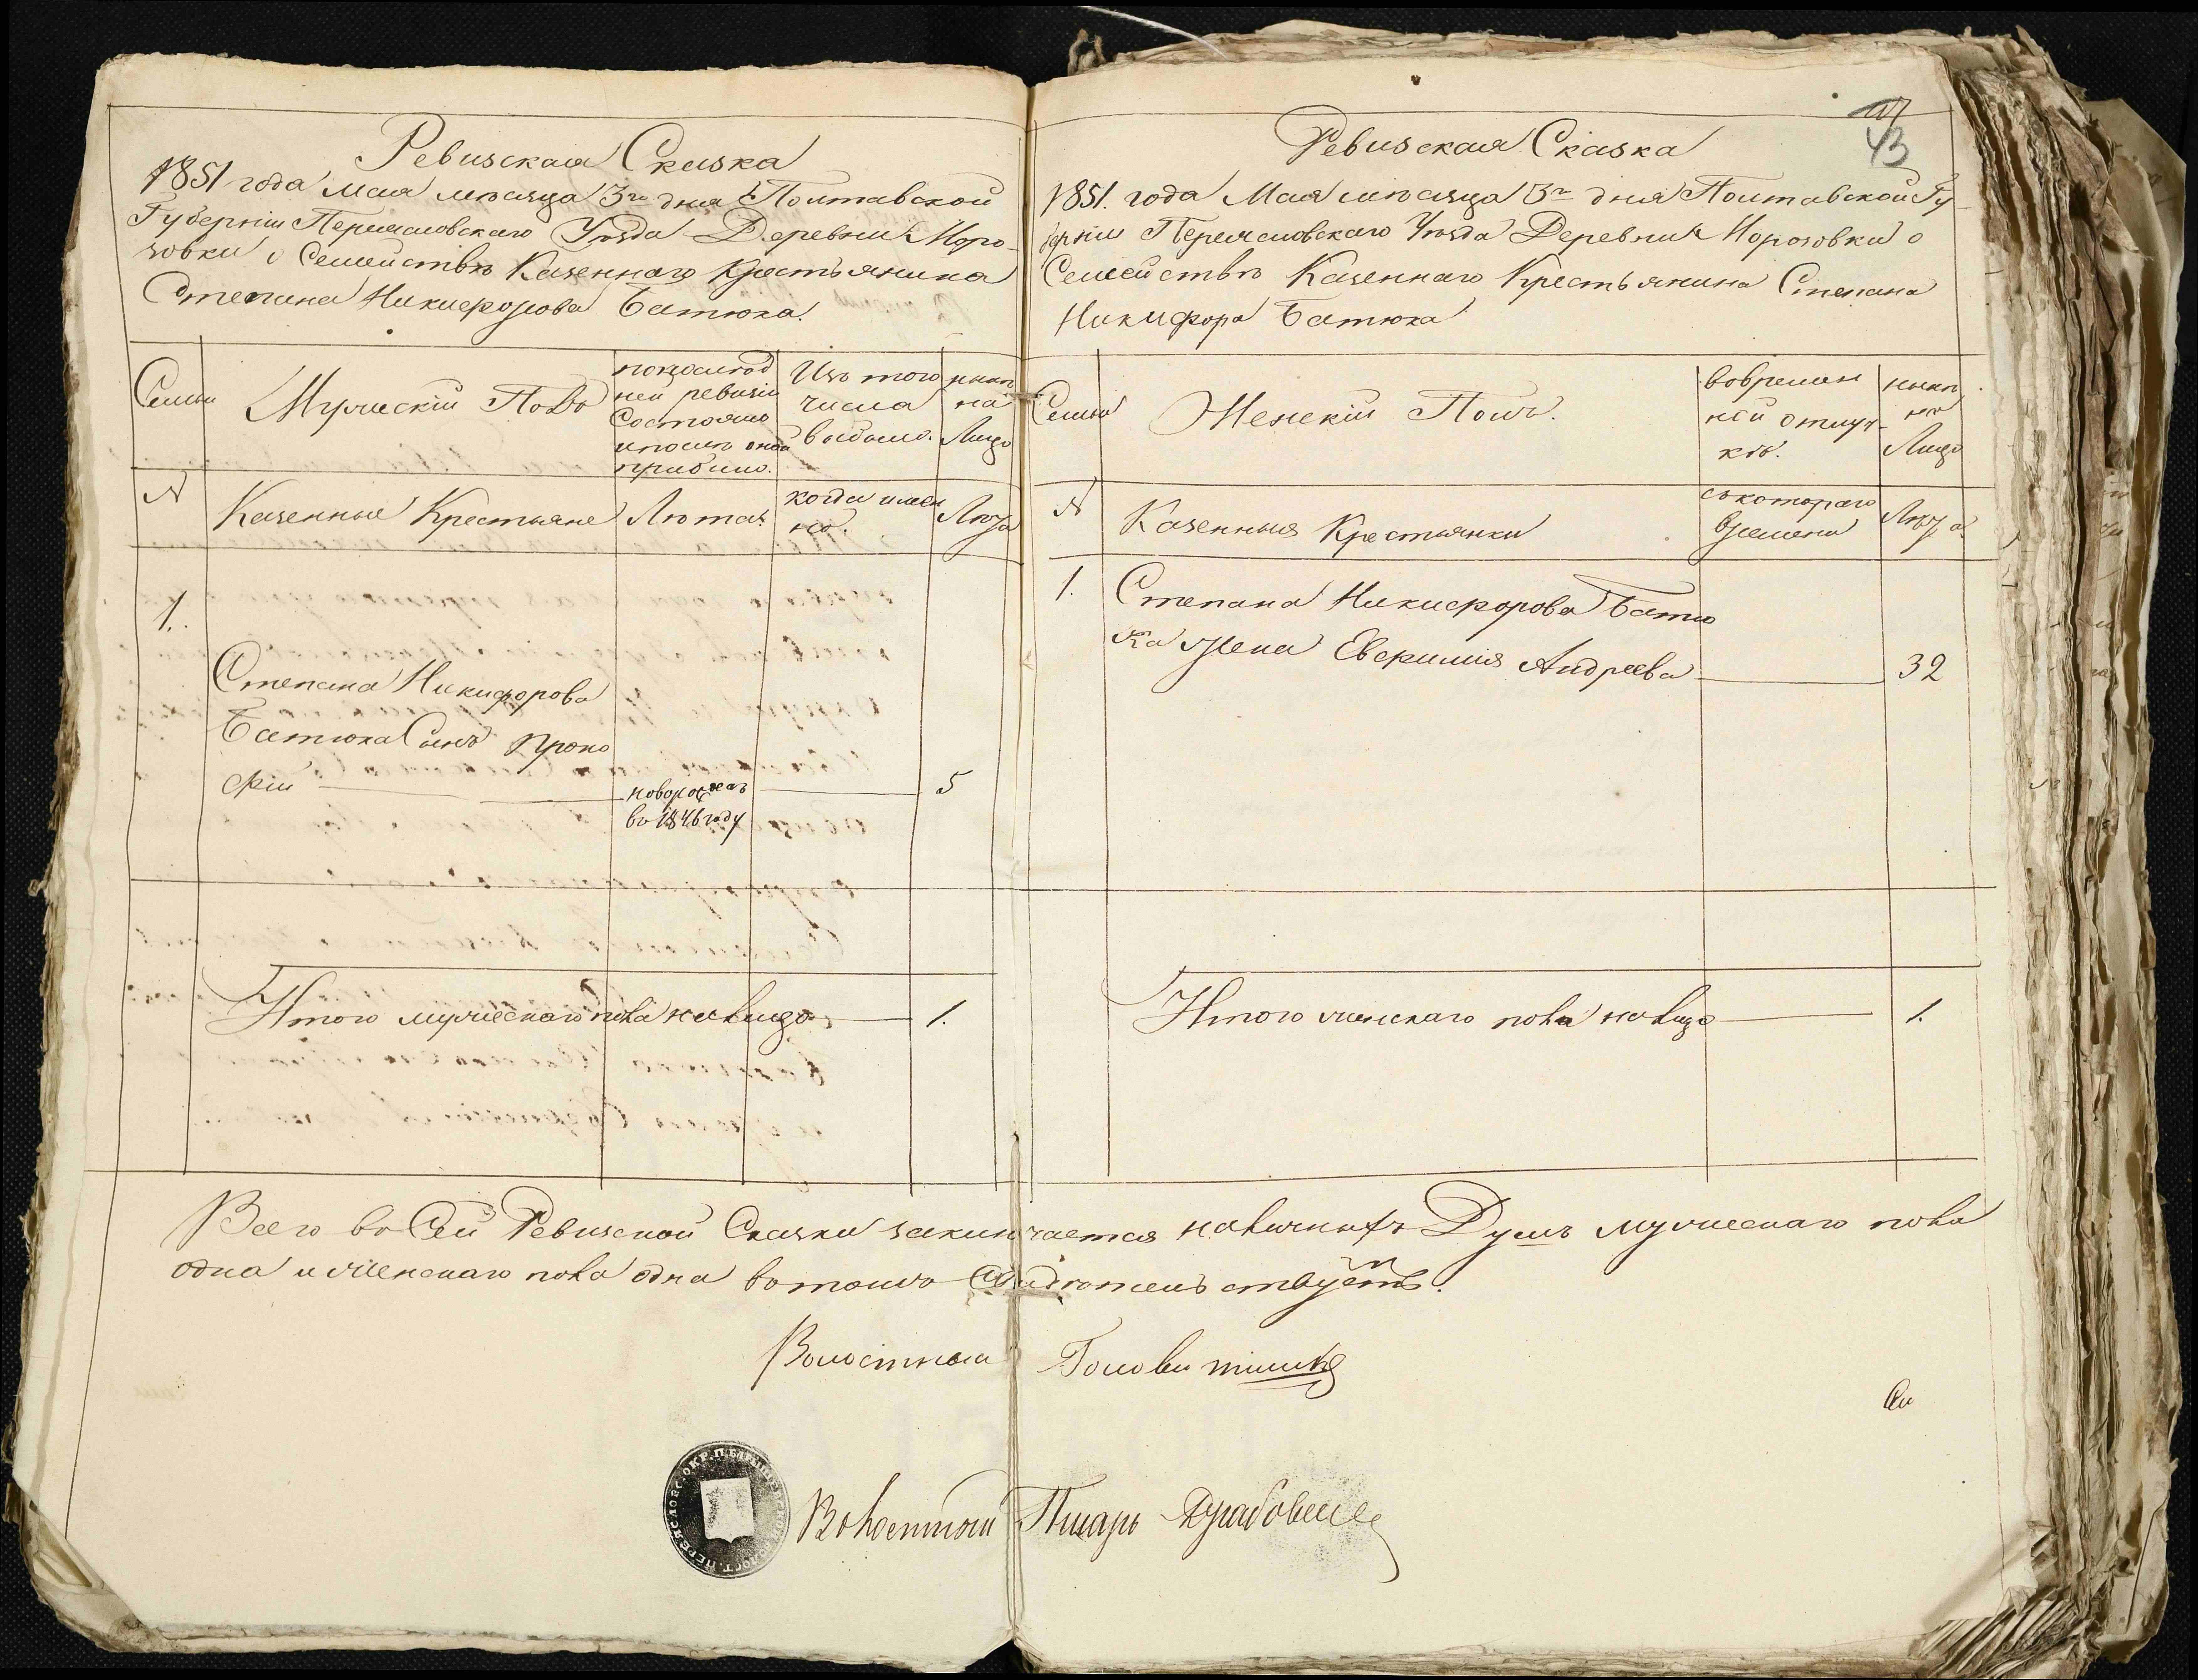 Ревизская Сказка
1851 года Мая мѣсяца 3го дня Полтавской
Губернiи Переяславскаго Уѣзда Деревни Моро-
зовки о Семействѣ Казеннаго Крестьянина
Степана Никифорова Батюка.
Семьи
Мужескiй Полъ
по последней ревизiи Состояло и после оной прибыло.
Изъ того числа выбыло.
нынѣ на Лицо
№
Казенные Крестьяне
Лѣта.
когда именно.
Лѣта
1.
Степана Никифорова
Батюка Сынъ Проко
фiй
новорожденъ
въ 1846 году
5
Итого мужескаго пола на лицо
1.
43
Ревизская Сказка
1851. года Мая мѣсяца 3го дня Полтавской Гу
бернiи Переяславскаго Уѣзда Деревни Морозовки о
Семействѣ Казеннаго Крестьянина Степана
Никифора Батюка
Семьи
Женскiй Полъ.
во времен
ной отлуч-
кѣ.
нынѣ
на
Лицо
№
Казенныя Крестьянки
съ котораго
времени
Лѣта
1.
Степана Никифорова Батю
ка жена Евфимия Андреева
32
Итого женскаго пола на лицо
1.
Всего во Сей Ревизской Сказки заключается наличныхъ Душъ мужескаго пола
одна и женскаго пола одна въ томъ Свидѣтельствуетъ.
Волостной Голова
Волостной Писарь